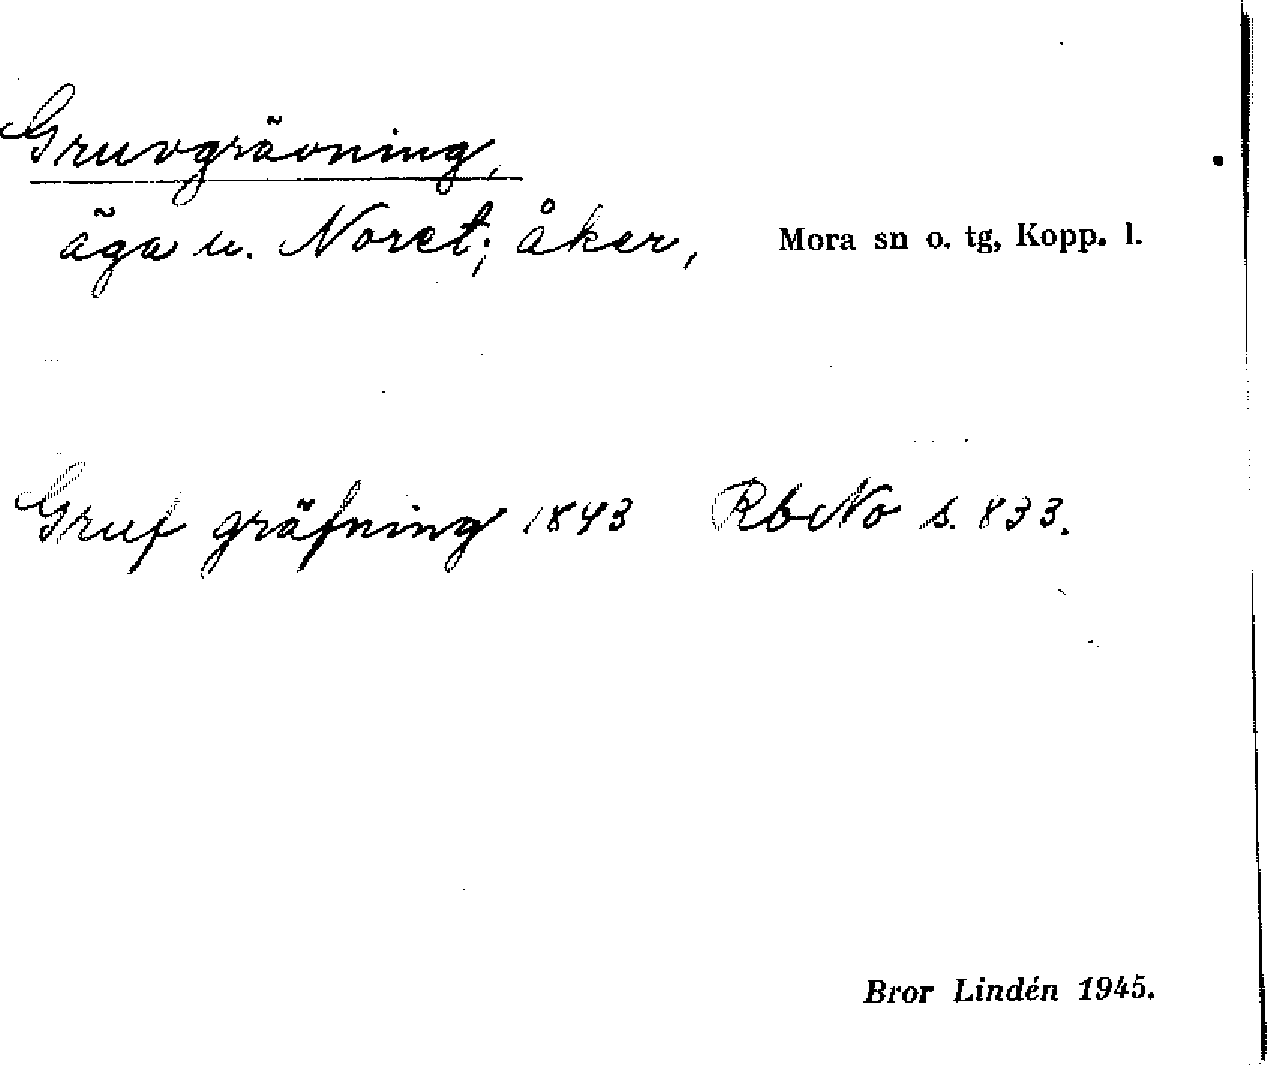 Gruvgrävning,
äga u. Noret; åker, Mora sn o. tg, Kopp. l.
Gruf gräfning 1843 RbNo s. 833.
Bror Lindén 1945.